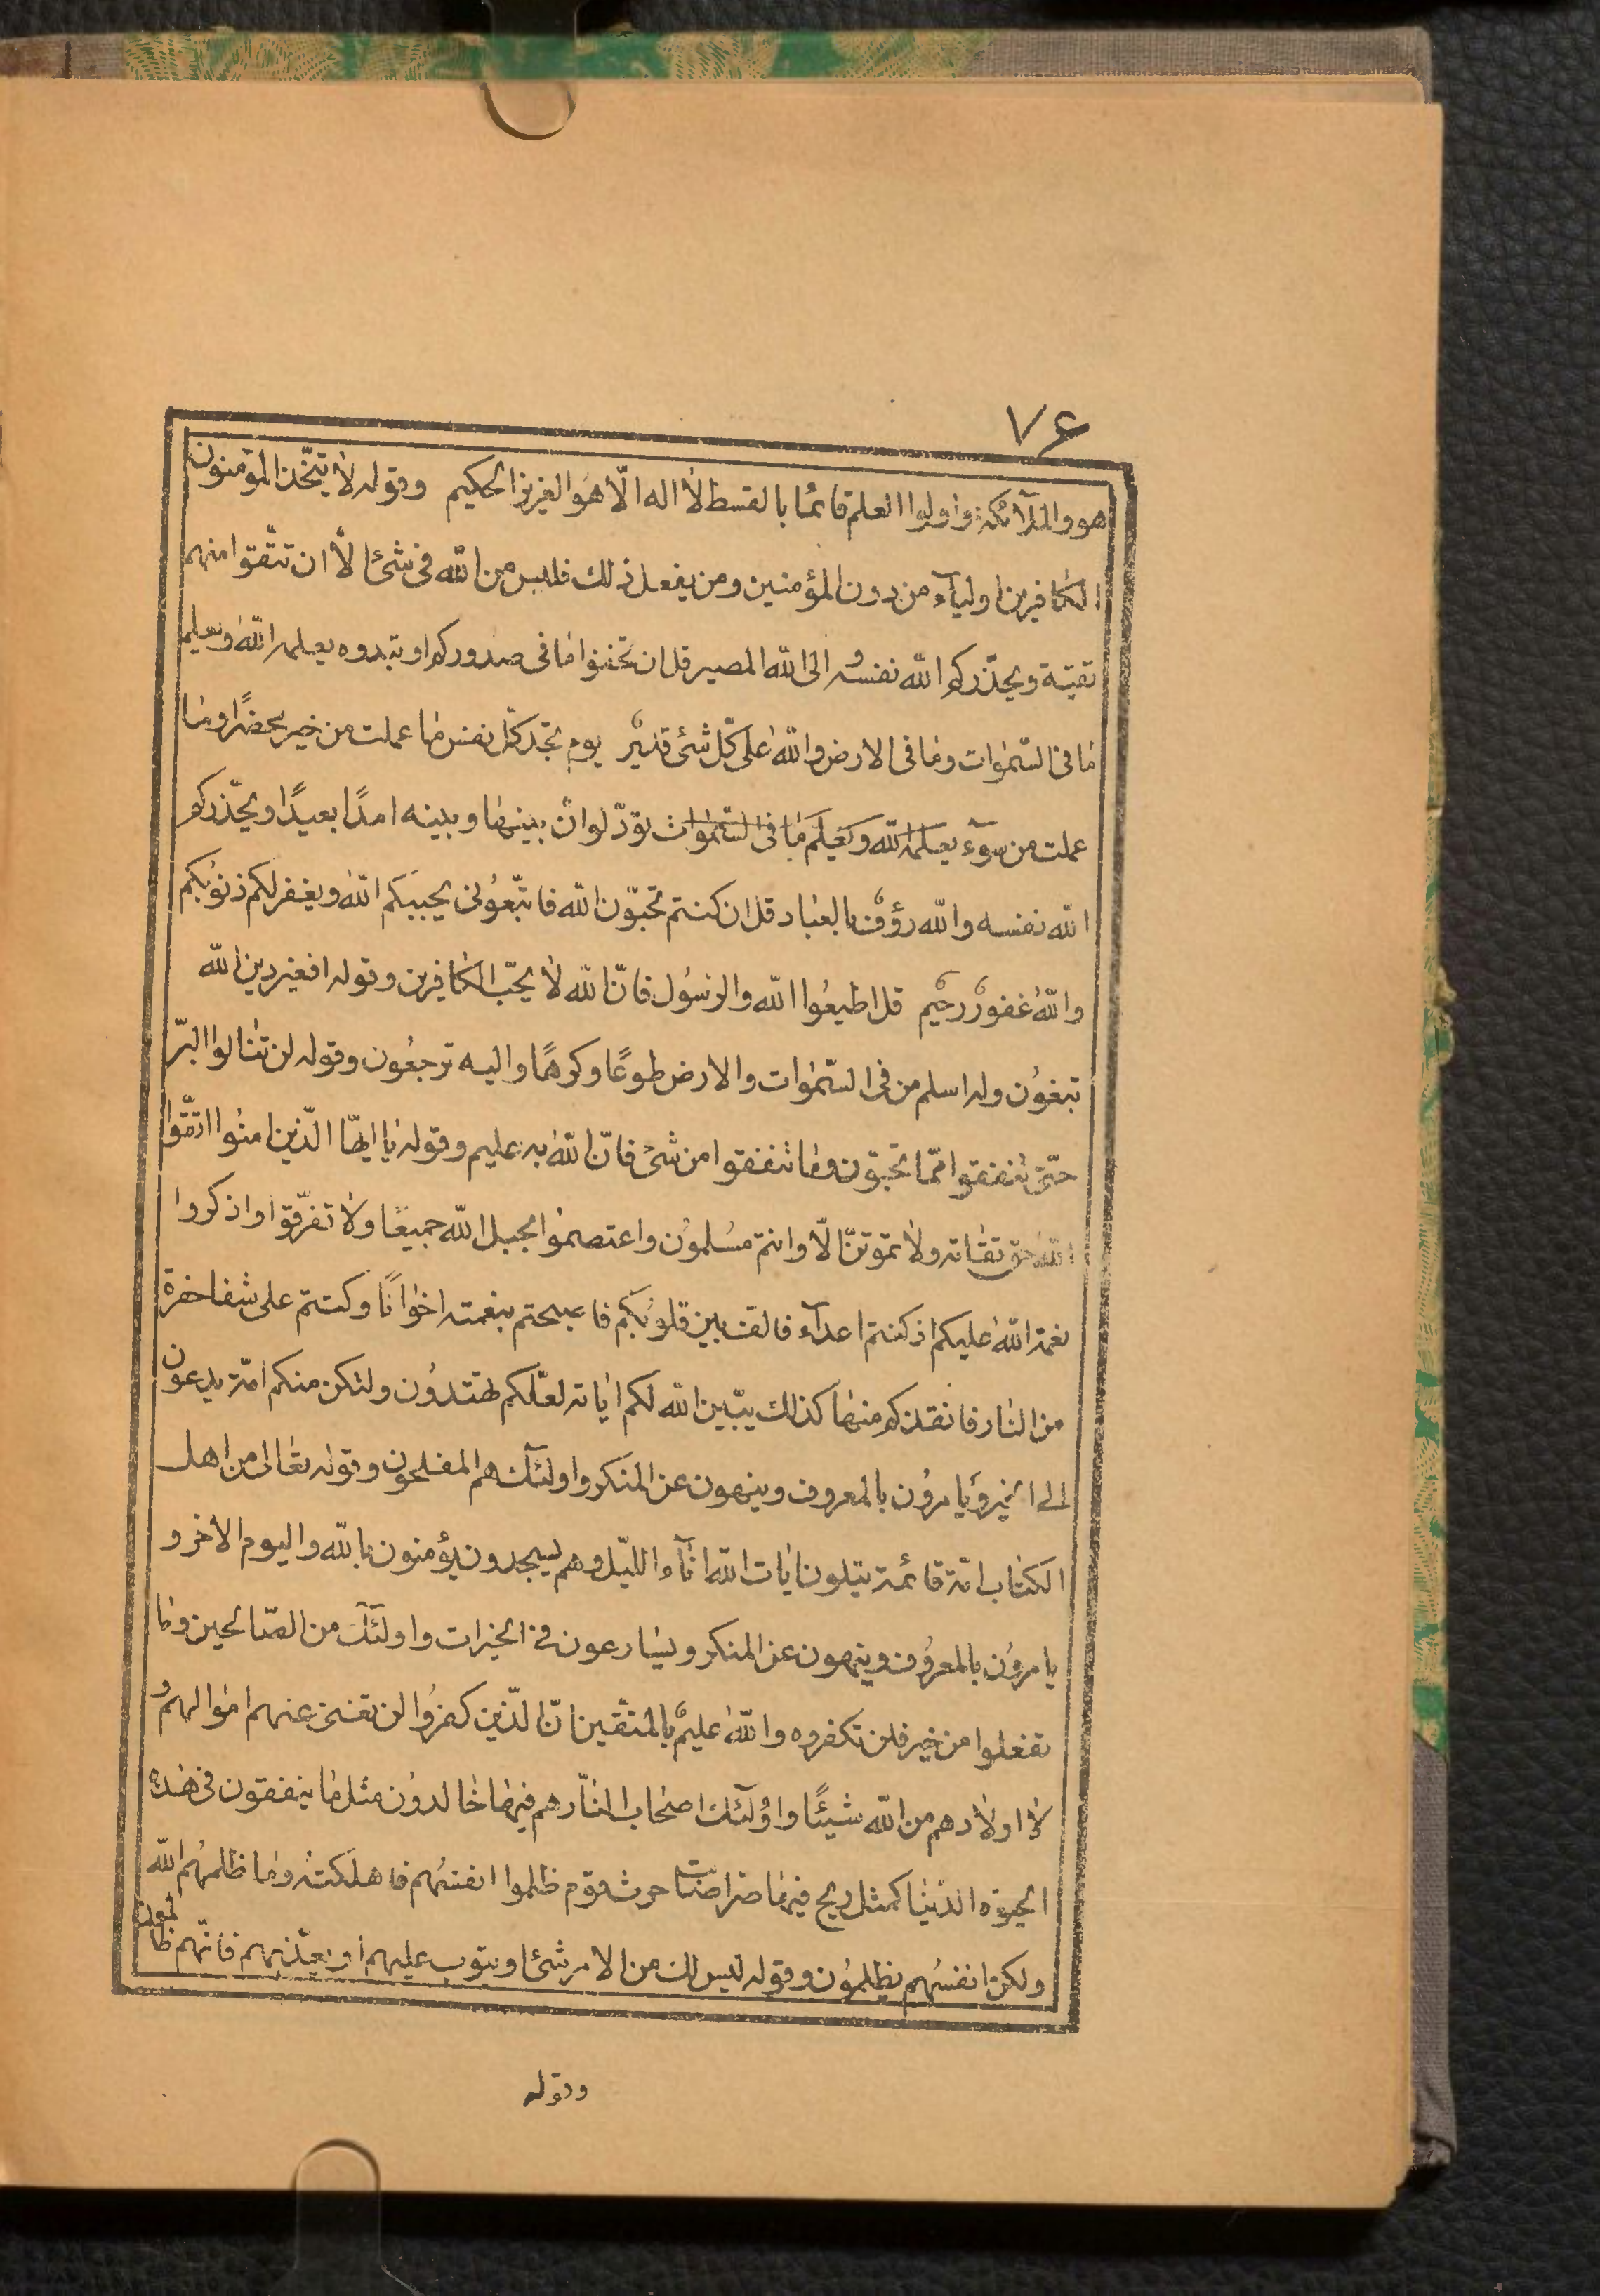 ٧۶
هو والملآئكة واولوا العلم قائمًا بالقسط لا اله الّا هو العزيز الحكيم وقوله لا يتّخذ المؤمنون
الكافرين اوليآء من دون المؤمنين ومن يفعل ذلك فليس من الله فى شئ الّا ان تتّقوا منهم
تقية ويحذّركم الله نفسه والى الله المصير قل ان تخفوا ما فى صدوركم او تبدوه يعلمه الله ويعلم
ما فى السّموات وما فى الارض والله على كلّ شئ قدير يوم تجد كلّ نفس ما عملت من خير محضرًا وما
عملت من سوء يعلمه الله ويعلم ما فى السّموات تودّ لو انّ بينها وبينه امدًا بعيدًا ويحذّركم
الله نفسه والله رؤف بالعباد قل ان كنتم تحبّون الله فاتّبعونى يحببكم الله ويغفر لكم ذنوبكم
والله غفور رحيم قل اطيعوا الله والرسول فانّ الله لا يحبّ الكافرين وقوله افغير دين الله
تبغون وله اسلم من فى السّموات والارض طوعًا وكرهًا واليه ترجعون وقوله لن تنالوا البرّ
حتّى تنفقوا ممّا تحبّون وما تنفقوا من شئ فانّ الله به عليم وقوله يا ايّها الّذين امنوا اتّقوا
الله حق تقاته ولا تموتنّ الّا وانتم مسلمون واعتصموا بحبل الله جميعًا ولا تفرّقوا واذكروا
نعمة الله عليكم اذ كنتم اعدآء فالف بين قلوبكم فاصبحتم بنعمته اخوانًا وكنتم على شفا حفرة
من النار فانقذكم منها كذلك يبّين الله لكم اياته لعلّكم تهتدون ولتكن منكم امّة يدعون
الى الخير ويامرون بالمعروف وينهون عن المنكر واولئك هم المفلحون وقوله تعالى من اهل
الكتاب امّة قائمة يتلون ايات الله اناء الليّل وهم يسجدون يؤمنون بالله واليوم الاخر و
يامرون بالمعروف وينهون عن المنكر ويسارعون فى الخيرات واولئك من الصّالحين وما
تفعلوا من خير فلن تكفروه والله عليم بالمتّقين انّ الّذين كفروا لن تغنى عنهم اموالهم و
لا اولادهم من الله شيئًا واولئك اصحاب النّار هم فيها خالدون مثل ما ينفقون فى هذه
الحيوة الدّنيا كمثل ريح فيها صرّ اصابت حرث قوم ظلموا انفسهم فاهلكته وما ظلمهم الله
ولكن انفسهم يظلمون وقوله ليس لك من الامر شئ او يتوب عليهم او يعذّبهم فانّهم ظالمون
وقوله